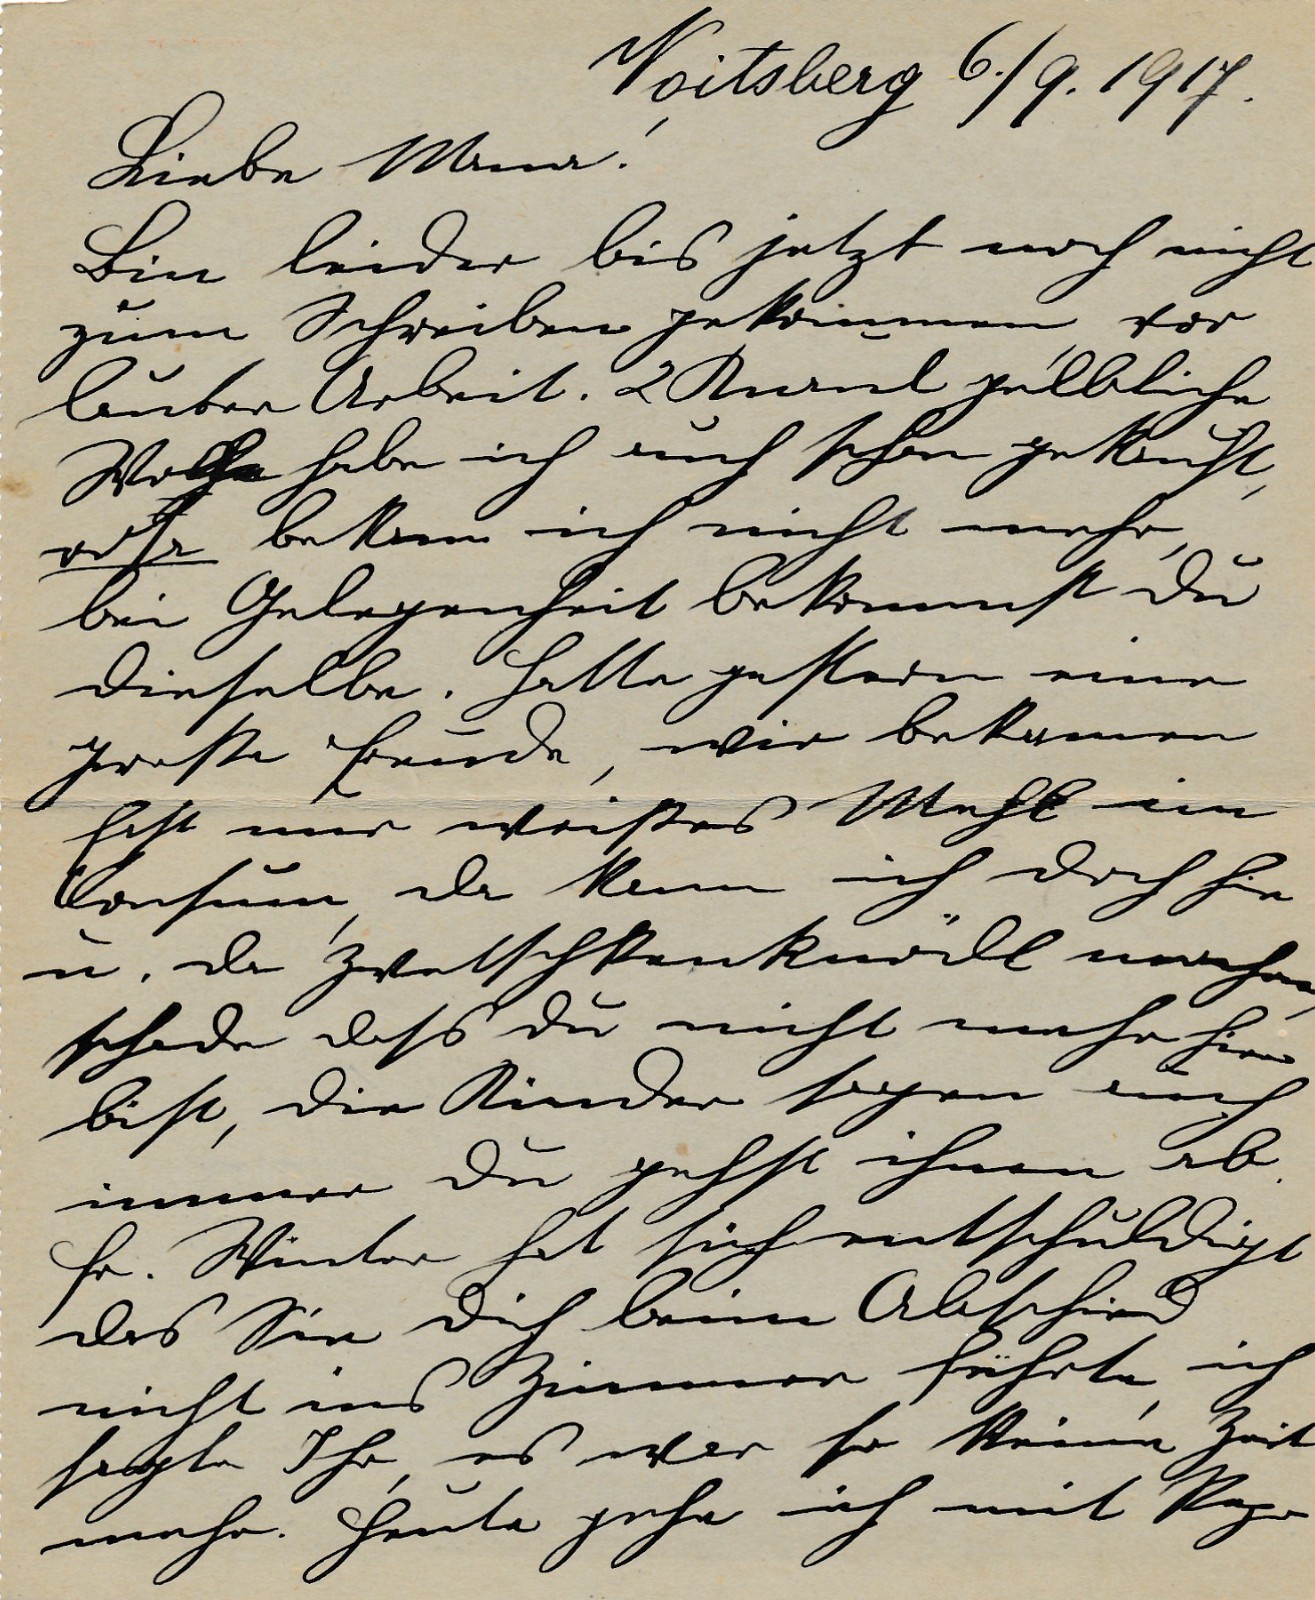 Voitsberg 6./9. 1917.
Liebe Mama!
Bin leider bis jetzt noch nicht
zum Schreiben gekommen, vor
lauter Arbeit. 2 gelbliche
Wolle habe ich auch schon gekauft,
bekam ich nicht mehr,
bei Gelegenheit bekommst du
dieselbe. Hatte gestern eine
große Freude, wir bekamen
fast nur weißes Mehl im
Consum, da kann ich doch hie
u. da Zwetschkenknödl machen,
schade dass du nicht mehr hier
bist, die Kinder sagen auch
immer du gehst ihnen ab.
Fr. Winter hat sich entschuldigt
das Sie dich beim Abschied
nicht ins Zimmer führte, ich
sagte Ihr, es war so keine Zeit
mehr. Heute gehe ich mit